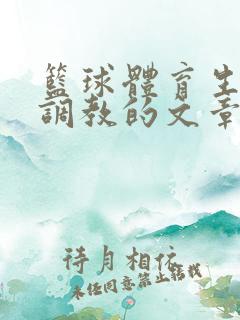 籃球體育生
調教的文章
待月相依
未经同意禁止转载